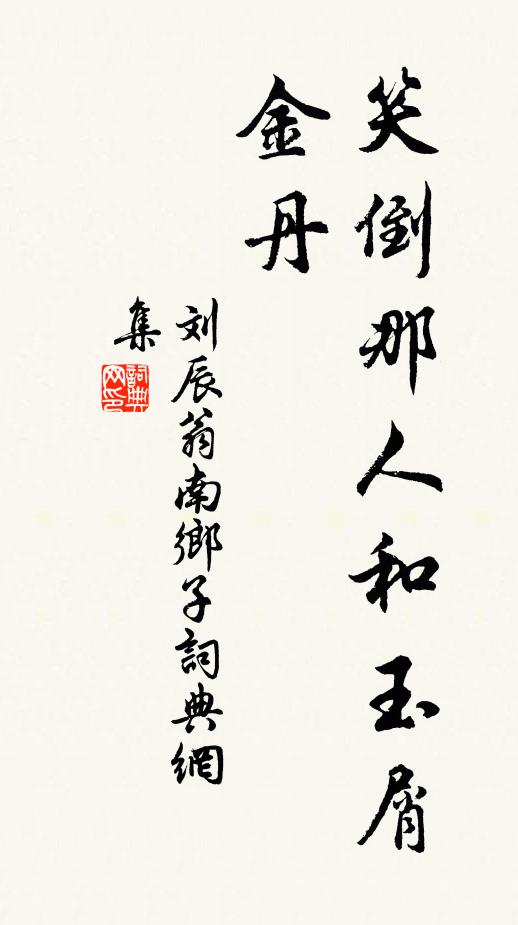 笑倒那人和玉屑
金丹
刘辰翁南鄉子詞典網
集
詞典
网印